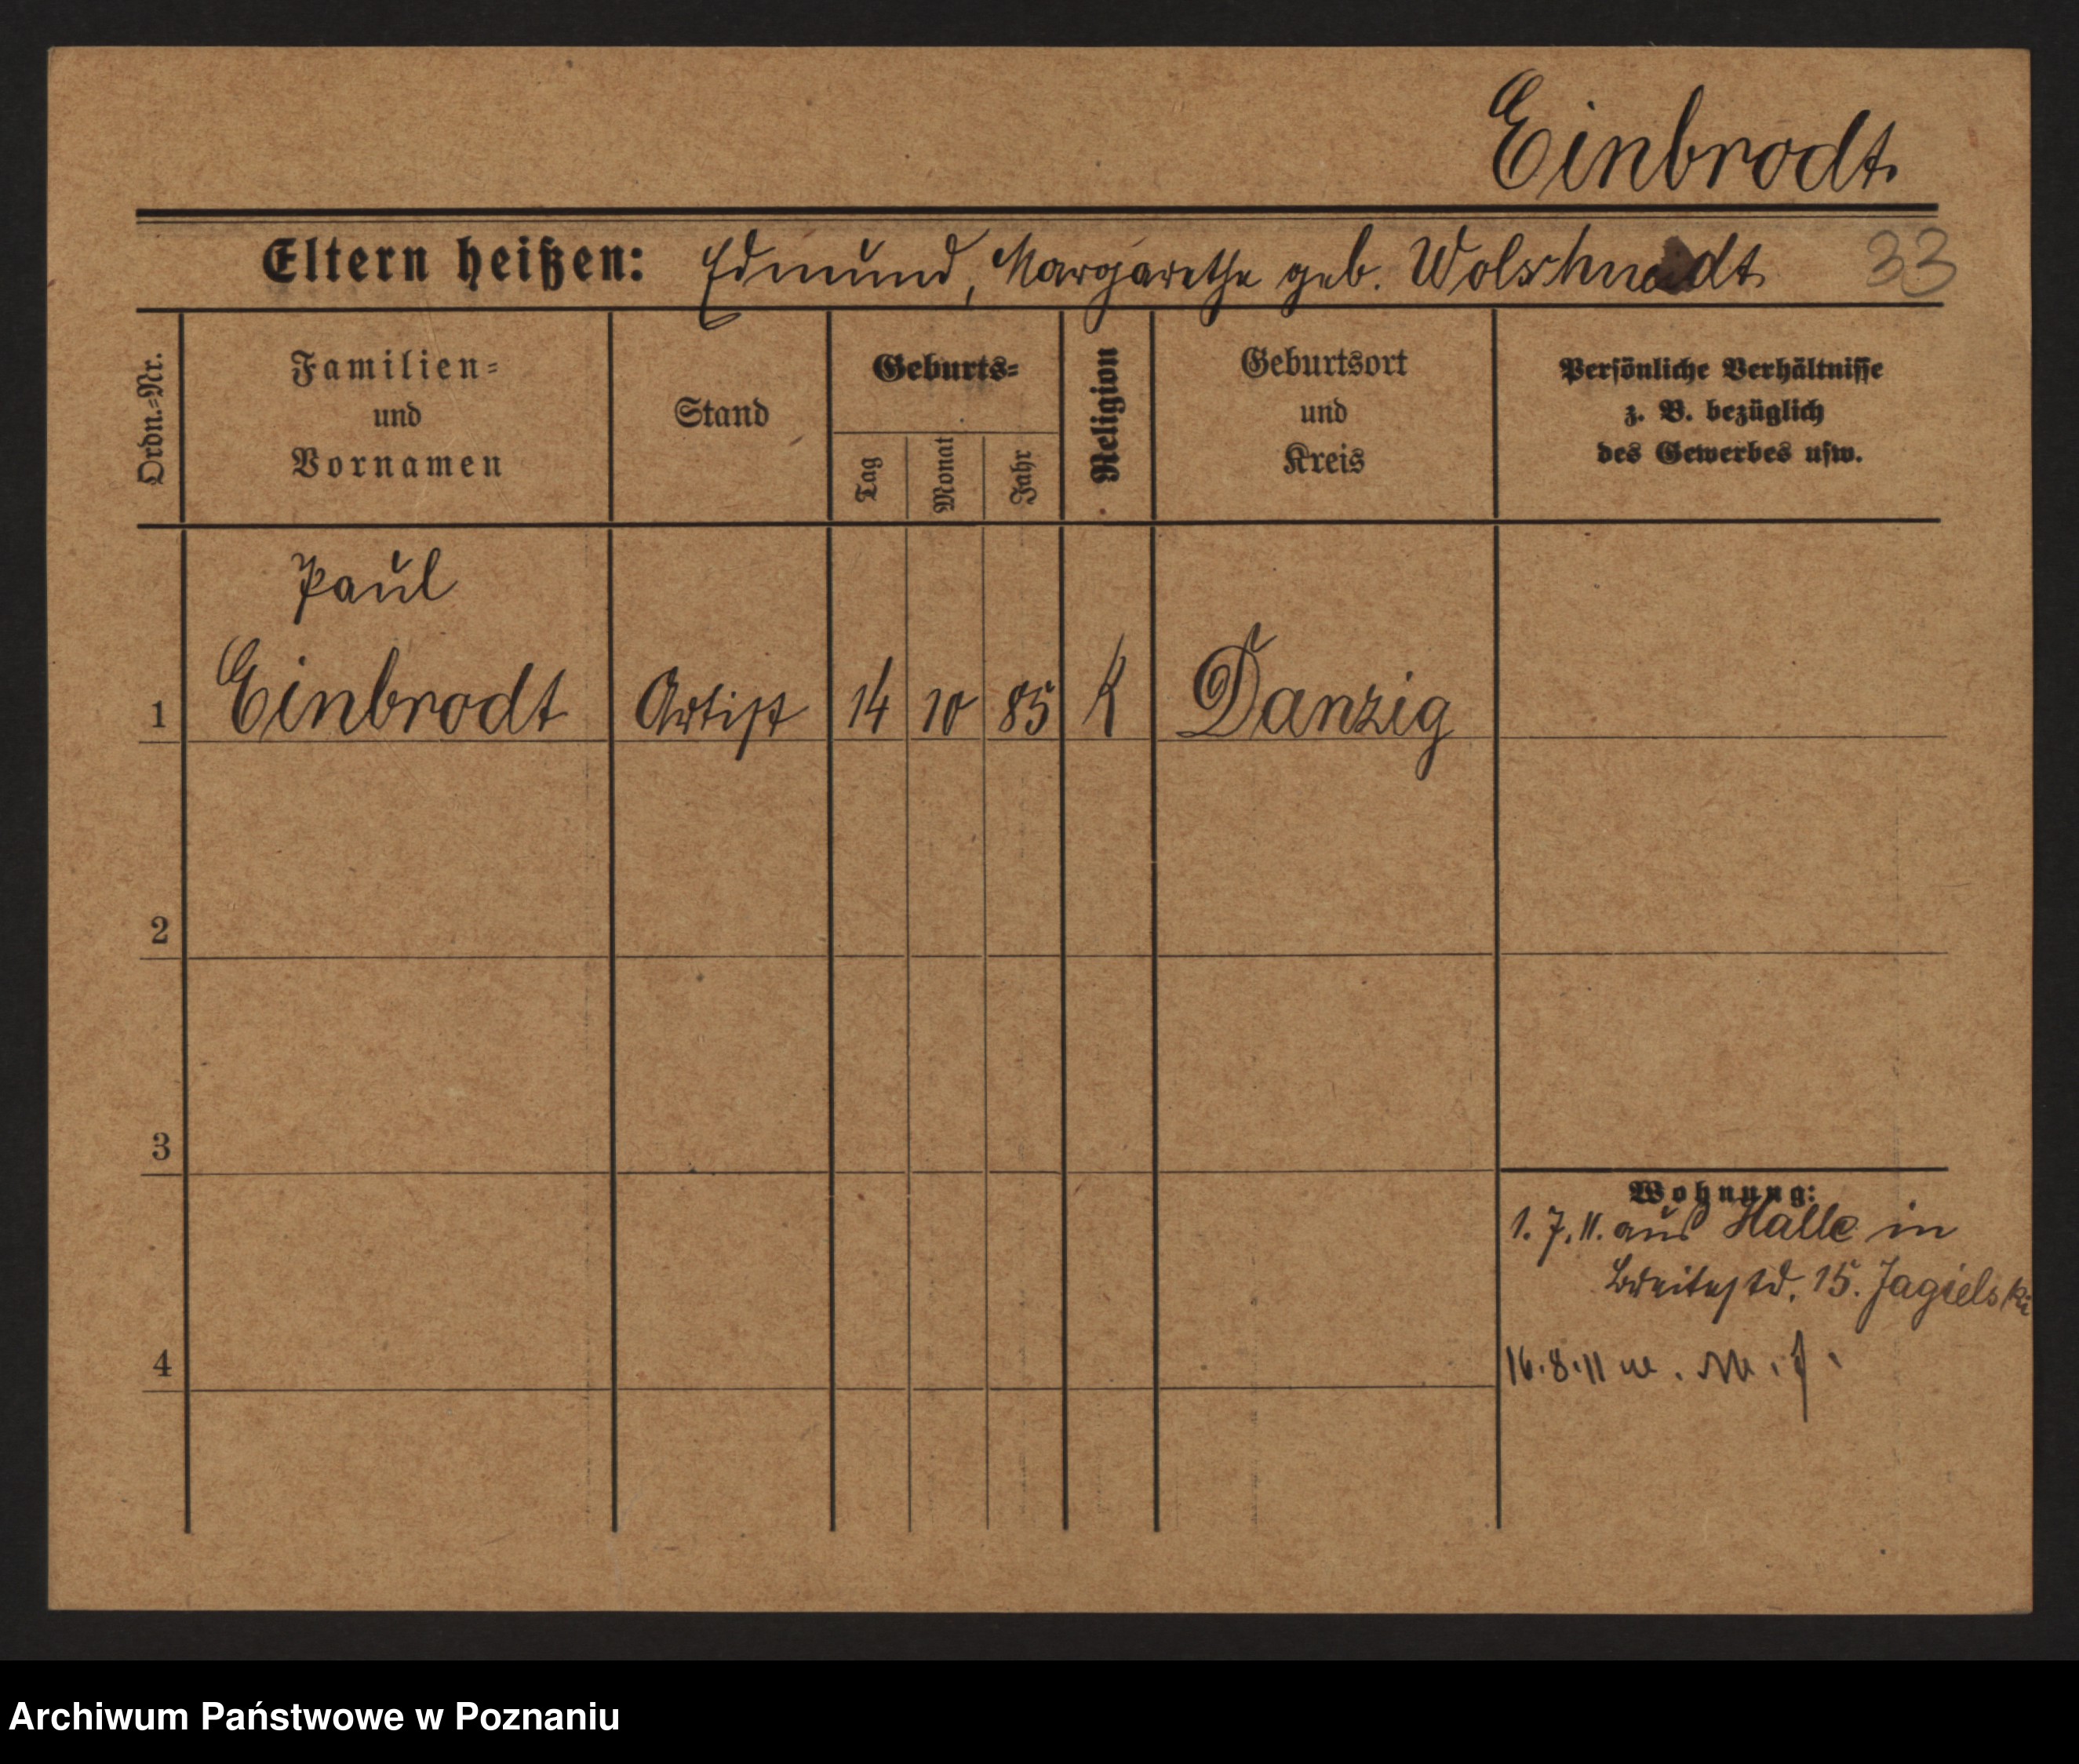 Einbrodt.
Eltern heißen: Edmund, Margarethe geb. 33
Ordn.=Nr.
Familien=
und
Vornamen
Stand
Geburts=
Tag
Monat
Jahr
Religion
Geburtsort
und
Kreis
Persönliche Verhältnisse
z. B. bezüglich
des Gewerbes usw.
Paul
1 Einbrodt Artist 14 10 85 K Danzig
2
3
4
Wohnung:
1.7.11. aus Halle in
Breitestr. 15. Jagielski
16.8.11
Archiwum Państwowe w Poznaniu